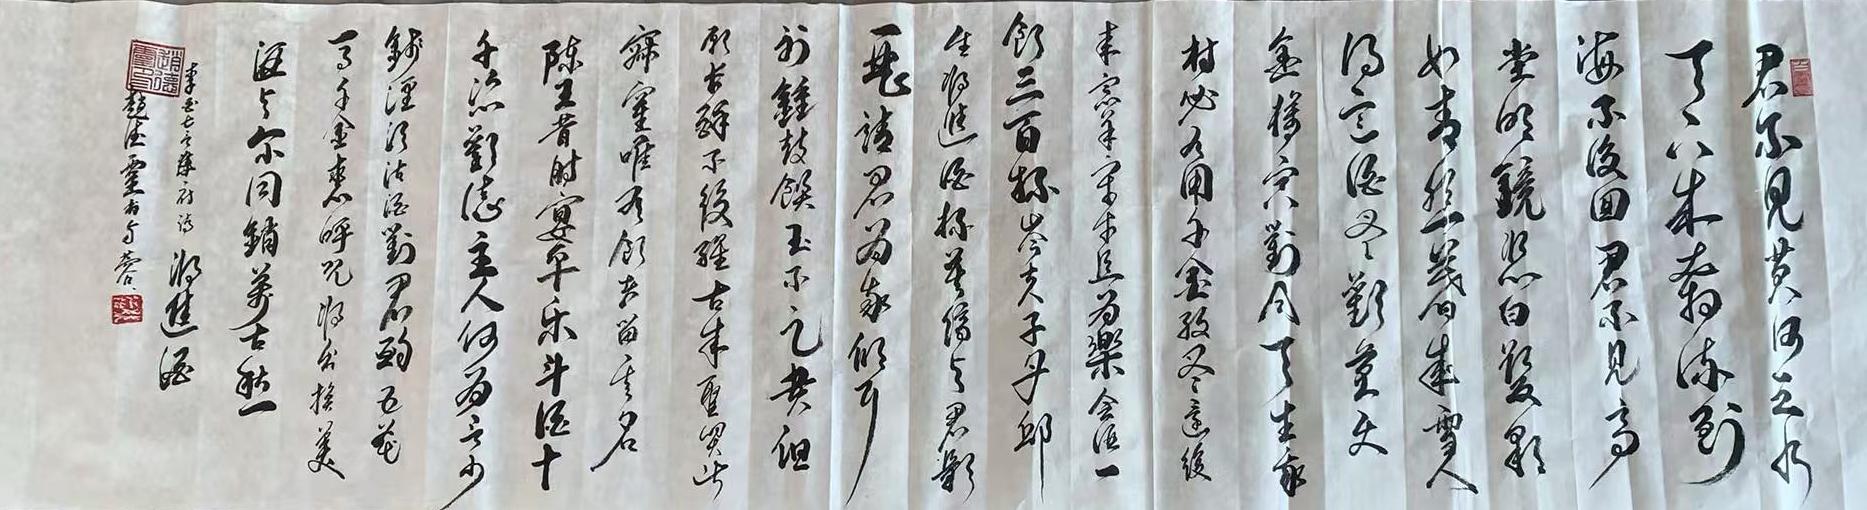 君不見黃河之水
天上来奔流到
海不復回君不見高
堂明鏡悲白髮朝
如青絲暮成雪人
得意須盡歡莫使
金樽空對月天生我
材必有用千金散盡還復
来烹羊宰牛且为樂會須一
飲三百杯岑夫子丹邱
生将進酒杯莫停与君歌
一曲請君为我傾耳
聽鐘鼓饌玉不足貴但
願長醉不復醒古来聖賢皆
寂寞唯有飲者留其名
陳王昔時宴平乐斗酒十
千恣歡謔主人何为言少
錢逕須沽酒對君酌五花
馬千金裘呼児将出換美
酒与尔同銷萬古愁
李白七言樂府詩 将進酒
趙德靈書於蓉